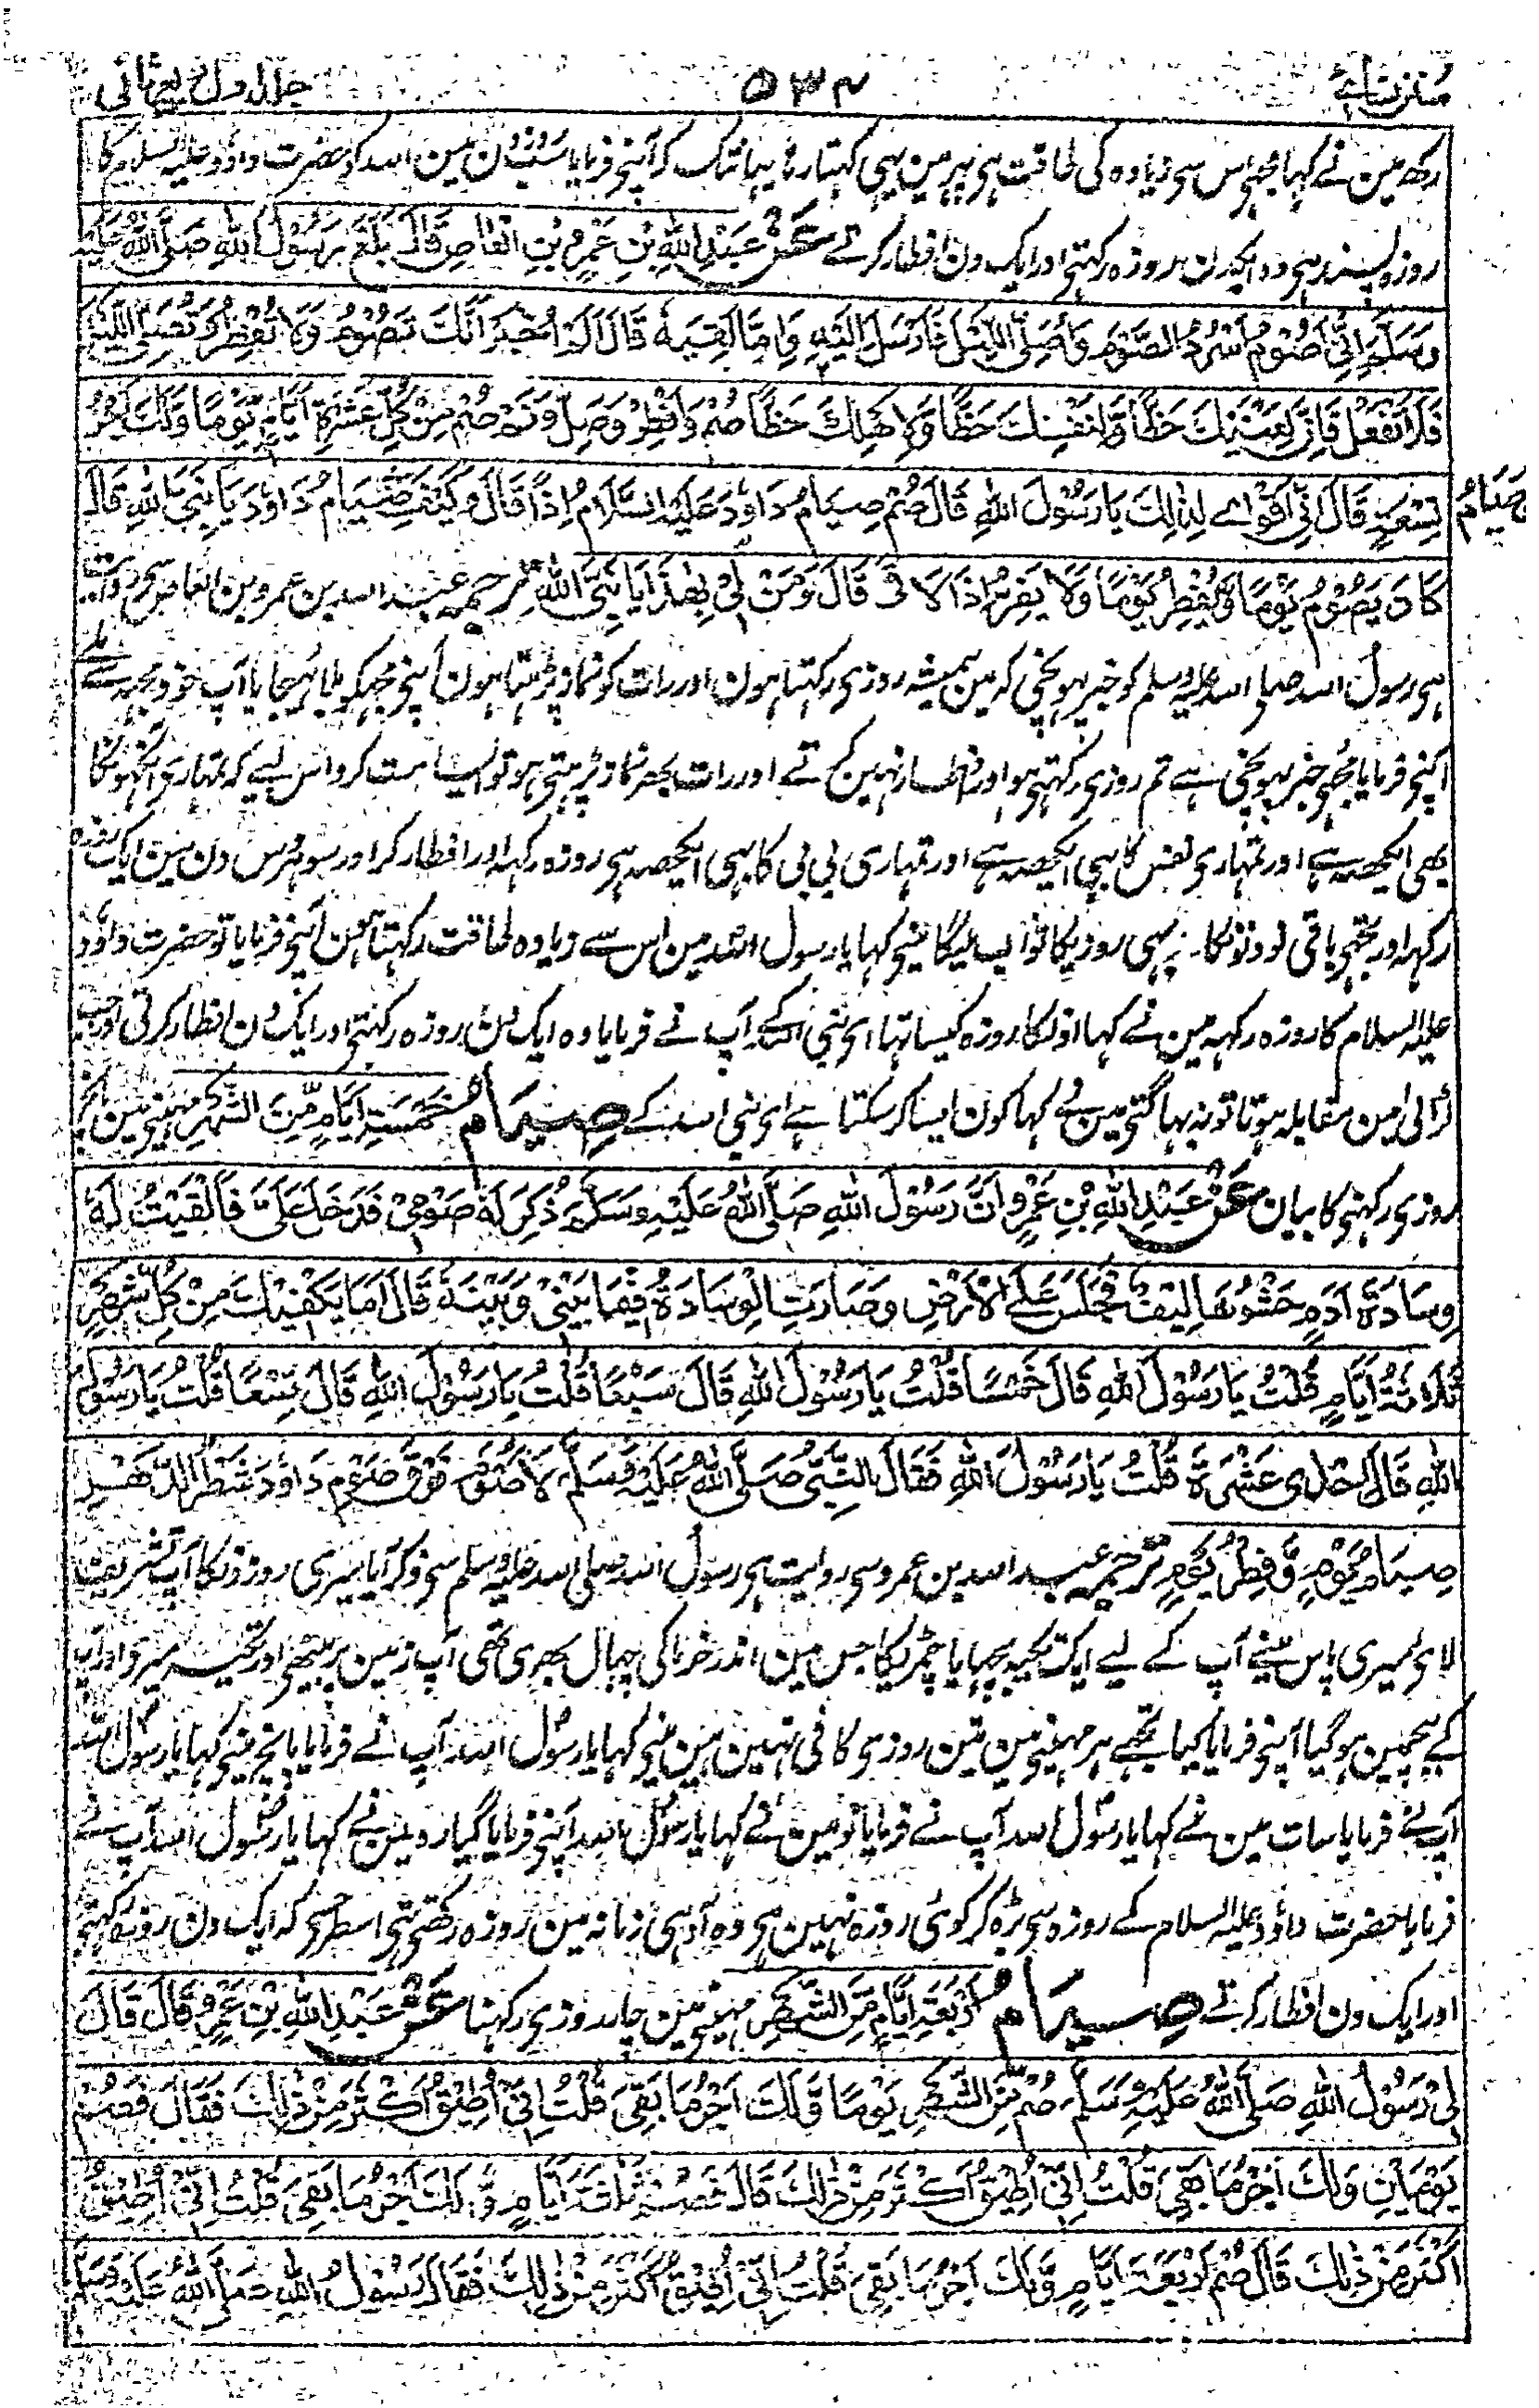 سنن نسائی ۵۳۴ جلد اول ربع ثانی
رکھ مین نے کہا مجھے اس سی زیادہ کی طاقت ہی پہر مین یہی کہتا رہا یہانتک کہ آپنی فرمایا سب روزون مین اللہ کو حضرت داؤد علیہ السلام کا
روزہ پسند ہی وہ ایکدن روزہ رکہتی اور ایک دن افطار کرتے عَنْ عَبْدِ اللهِ بْنِ عَمْرِو بْنِ الْعَاصِ قَالَ بَلَغَ رَسُوْلَ اللهِ صَلَّى اللهُ عَلَيْهِ
وَسَلَّمَ اَنِّيْ اَصُوْمُ اَسْرُدُ الصَّوْمَ وَاُصَلِّي اللَّيْلَ فَاَرْسَلَ اِلَيْهِ وَاِمَّا لَقِيَهُ قَالَ اَلَمْ اُخْبَرْ اَنَّكَ تَصُوْمُ وَلَا تُفْطِرُ وَتُصَلِّي اللَّيْلَ
فَلَا تَفْعَلْ فَاِنَّ لِعَيْنِكَ حَظًّا وَّلِنَفْسِكَ حَظًّا وَلِاَهْلِكَ حَظًّا صُمْ وَاَفْطِرْ وَصَلِّ وَنَمْ وَصُمْ مِنْ كُلِّ عَشَرَةِ اَيَّامٍ يَّوْمًا وَّلَكَ اَجْرُ
تِسْعَةٍ قَالَ اِنِّيْ اَقْوٰى لِذٰلِكَ يَا رَسُوْلَ اللهِ قَالَ صُمْ صِيَامَ دَاوٗدَ عَلَيْهِ السَّلَامُ اِذًا قَالَ وَكَيْفَ صِيَامُ دَاوٗدَ يَا نَبِيَّ اللهِ قَالَ
صِيَامُ
كَانَ يَصُوْمُ يَوْمًا وَّيُفْطِرُ يَوْمًا وَلَا يَفِرُّ اِذَا لَاقٰى قَالَ وَمَنْ لِّيْ بِهٰذَا يَا نَبِيَّ اللهِ ترجمہ عبد اللہ بن عمرو بن العاص سی روایت
ہی رسول اللہ صلی اللہ علیہ وسلم کو خبر پہونچی کہ مین ہمیشہ روزی رکہتا ہون اور رات کو نماز پڑہتا ہون آپنی مجہکو بلا بہیجا یا آپ خود مجہسے ملے
آپنی فرمایا مجہی خبر پہونچی ہے تم روزی رکہتی ہو اور افطار نہین کرتے اور رات بھر نماز پڑہتی ہو تو ایسا مت کرو اس لیے کہ تمہاری آنکہونکا
بھی ایکحصہ ہے اور تمہاری نفس کا بہی ایکحصہ ہے اور تمہاری بی بی کا بہی ایکحصہ ہی روزہ رکہہ اور افطار کر اور سو ہر دس دن مین ایک روزہ
رکہہ اور تجہی باقی نو دنونکا بہی روزیکا ثواب ملیگا مینی کہا یا رسول اللہ مین اس سے زیادہ طاقت رکہتا ہون آپنی فرمایا تو حضرت داؤد
علیہ السلام کا روزہ رکہہ مین نے کہا اونکا روزہ کیسا تہا ای نبی اللہ کے آپ نے فرمایا وہ ایک دن روزہ رکہتی اور ایک دن افطار کرتی اور جب
لڑائی مین مقابلہ ہوتا تو نہ بہاگتی مین نے کہا کون ایسا کر سکتا ہے ای نبی اللہ کے صِيَامُ خَمْسَةِ اَيَّامٍ مِّنَ الشَّهْرِ مہینی مین پانچ
روزی رکہنی کا بیان عَنْ عَبْدِ اللهِ بْنِ عَمْرٍو اَنَّ رَسُوْلَ اللهِ صَلَّى اللهُ عَلَيْهِ وَسَلَّمَ ذُكِرَ لَهٗ صَوْمِيْ فَدَخَلَ عَلَيَّ فَاَلْقَيْتُ لَهٗ
وِسَادَةَ اَدَمٍ حَشْوُهَا لِيْفٌ فَجَلَسَ عَلَى الْاَرْضِ وَصَارَتِ الْوِسَادَةُ فِيْمَا بَيْنِيْ وَبَيْنَهٗ قَالَ اَمَا يَكْفِيْكَ مِنْ كُلِّ شَهْرٍ
ثَلَاثَةُ اَيَّامٍ قُلْتُ يَا رَسُوْلَ اللهِ قَالَ خَمْسًا قُلْتُ يَا رَسُوْلَ اللهِ قَالَ سَبْعًا قُلْتُ يَا رَسُوْلَ اللهِ قَالَ تِسْعًا قُلْتُ يَا رَسُوْلَ
اللهِ قَالَ اِحْدٰى عَشْرَةَ قُلْتُ يَا رَسُوْلَ اللهِ فَقَالَ النَّبِيُّ صَلَّى اللهُ عَلَيْهِ وَسَلَّمَ لَا صَوْمَ فَوْقَ صَوْمِ دَاوٗدَ شَطْرُ الدَّهْرِ
صِيَامُ يَوْمٍ وَّفِطْرُ يَوْمٍ ترجمہ عبد اللہ بن عمرو سی روایت ہی رسول اللہ صلی اللہ علیہ وسلم سی ذکر آیا میری روزونکا آپ تشریف
لائی میری پاس مینے آپ کے لیے ایک تکیہ بچہایا چمڑیکا جس مین اندر خرما کی چہال بھری تھی آپ زمین پر بیٹھی اور تکیہ میری اور آپ
کے بیچمین ہوگیا آپنی فرمایا کیا تجھے ہر مہینی مین تین روزی کافی نہین ہین مینی کہا یا رسول اللہ آپ نے فرمایا پانچ مینی کہا یا رسول اللہ
آپ نے فرمایا سات مین نے کہا یا رسول اللہ آپ نے فرمایا نو مین نے کہا یا رسول اللہ آپنی فرمایا گیارہ مین نے کہا یا رسول اللہ آپ نے
فرمایا حضرت داؤد علیہ السلام کے روزہ سی بڑہ کر کوئی روزہ نہین ہی وہ آدہی زمانہ مین روزہ رکھتی تہی اسطرحی کہ ایک دن روزہ رکہتی
اور ایک دن افطار کرتے صِيَامُ اَرْبَعَةِ اَيَّامٍ مِّنَ الشَّهْرِ مہینی مین چار روزی رکہنا عَنْ عَبْدِ اللهِ بْنِ عَمْرٍو قَالَ قَالَ
لِيْ رَسُوْلُ اللهِ صَلَّى اللهُ عَلَيْهِ وَسَلَّمَ صُمْ مِّنَ الشَّهْرِ يَوْمًا وَّلَكَ اَجْرُ مَا بَقِيَ قُلْتُ اِنِّيْ اُطِيْقُ اَكْثَرَ مِنْ ذٰلِكَ فَقَالَ فَصُمْ
يَوْمَيْنِ وَلَكَ اَجْرُ مَا بَقِيَ قُلْتُ اِنِّيْ اُطِيْقُ اَكْثَرَ مِنْ ذٰلِكَ قَالَ فَصُمْ ثَلٰثَةَ اَيَّامٍ وَّلَكَ اَجْرُ مَا بَقِيَ قُلْتُ اِنِّيْ اُطِيْقُ
اَكْثَرَ مِنْ ذٰلِكَ قَالَ صُمْ اَرْبَعَةَ اَيَّامٍ وَّلَكَ اَجْرُ مَا بَقِيَ قُلْتُ اِنِّيْ اُطِيْقُ اَكْثَرَ مِنْ ذٰلِكَ فَقَالَ رَسُوْلُ اللهِ صَلَّى اللهُ عَلَيْهِ وَسَلَّمَ